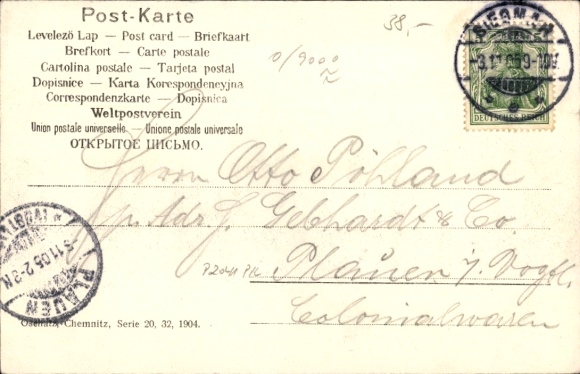 Post-Karte
Levelező Lap — Post card — Briefkaart
Brefkort — Carte postale
Cartolina postale — Tarjeta postal
Dopisnice — Karta Korespondencyjna
Correspondenzkarte — Dopisnica
Weltpostverein
Union postale universelle — Unione postale universale
ОТКРЫТОЕ ПИСЬМО.
38,-
0/9000
DEUTSCHES REICH
Herrn Otto Pöhland
p. Adr. J. Gebhardt & Co.
Plauen i/ Vogtl.
Colonialwaren
PLAUEN
11.05.2-3N
Oschatz, Chemnitz, Serie 20, 32, 1904.